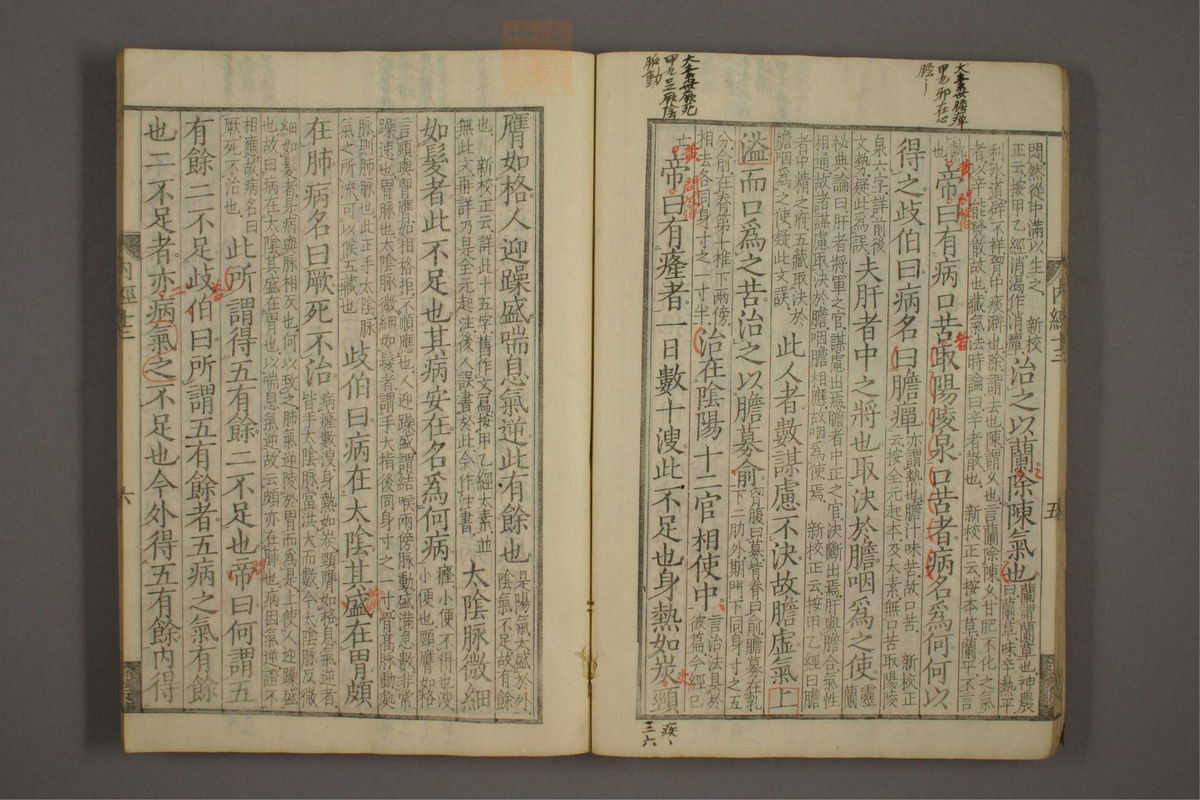 大素無膽癉
甲九邪在心
膽
內經十三
五
悶然從中滿以生之 新校
正云按甲乙經消渴作消癉
治之以蘭除陳氣也
蘭謂蘭草也神農
曰蘭草味辛熱平
利水道辟不祥胷中痰澼也除謂去也陳謂久也言蘭除陳久甘肥不化之氣
者以辛能發散故也藏氣法時論曰辛者散也 新校正云按本草蘭平不言
熱
也
帝曰有病口苦取陽陵泉口苦者病名爲何何以
得之歧伯曰病名曰膽癉
亦謂熱也膽汁味苦故口苦 新校正
云按全元起本及太素無口苦取陽陵
泉六字詳前後
文勢疑此爲誤
夫肝者中之將也取決於膽咽爲之使
靈
蘭
秘典論曰肝者將軍之官謀慮出焉膽者中正之官決斷出焉肝與膽合氣性
相通故諸謀慮取決於膽咽膽相應故咽爲使焉 新校正云按甲乙經曰膽
者中精之府五藏取決於
膽咽爲之使疑此文誤
此人者數謀慮不決故膽虛氣上
溢而口爲之苦治之以膽募俞
胷腹曰募背脊曰俞膽募在乳
下二肋外期門下同身寸之五
分俞在脊第十椎下兩傍
相去各同身寸之一寸半
治在陰陽十二官相使中
言治法具於
彼篇今經已
亡
帝曰有癃者一日數十溲此不足也身熱如炭頸
大素無厥死
甲九足厥陰
脈動
膺如格人迎躁盛喘息氣逆此有餘也
是陽氣太盛於外
陰氣不足故有餘
也 新校正云詳此十五字舊作文寫按甲乙經太素並
無此文再詳乃是全元起注後人誤書於此今作注書
太陰脉微細
如髮者此不足也其病安在名爲何病
癃小便不得也溲
小便也頸膺如格
言頸與胷膺如相格拒不順應也人迎躁盛謂結喉兩傍脉動盛滿急數非常
躁速也胃脉也太陰脉微細如髮者謂手大指後同身寸之一寸骨高脉動處
脉則肺脉也此正手太陰脉
氣之所流可以候五藏也
歧伯曰病在太陰其盛在胃頗
在肺病名曰厥死不治
病癃數溲身熱如炭頸膺如格息氣逆者
皆手太陰脉當洪大而數今太陰脉反微
細如髮者是病與脉相反也何以致之肺氣逆陵於胃而爲是上使人迎躁盛
也故曰病在太陰其盛在胃也以喘息氣逆故云頗亦在肺也病因氣逆證不
相應故病名曰
厥死不治也
此所謂得五有餘二不足也帝曰何謂五
有餘二不足歧伯曰所謂五有餘者五病之氣有餘
也二不足者亦病氣之不足也今外得五有餘內得
內經十三
六